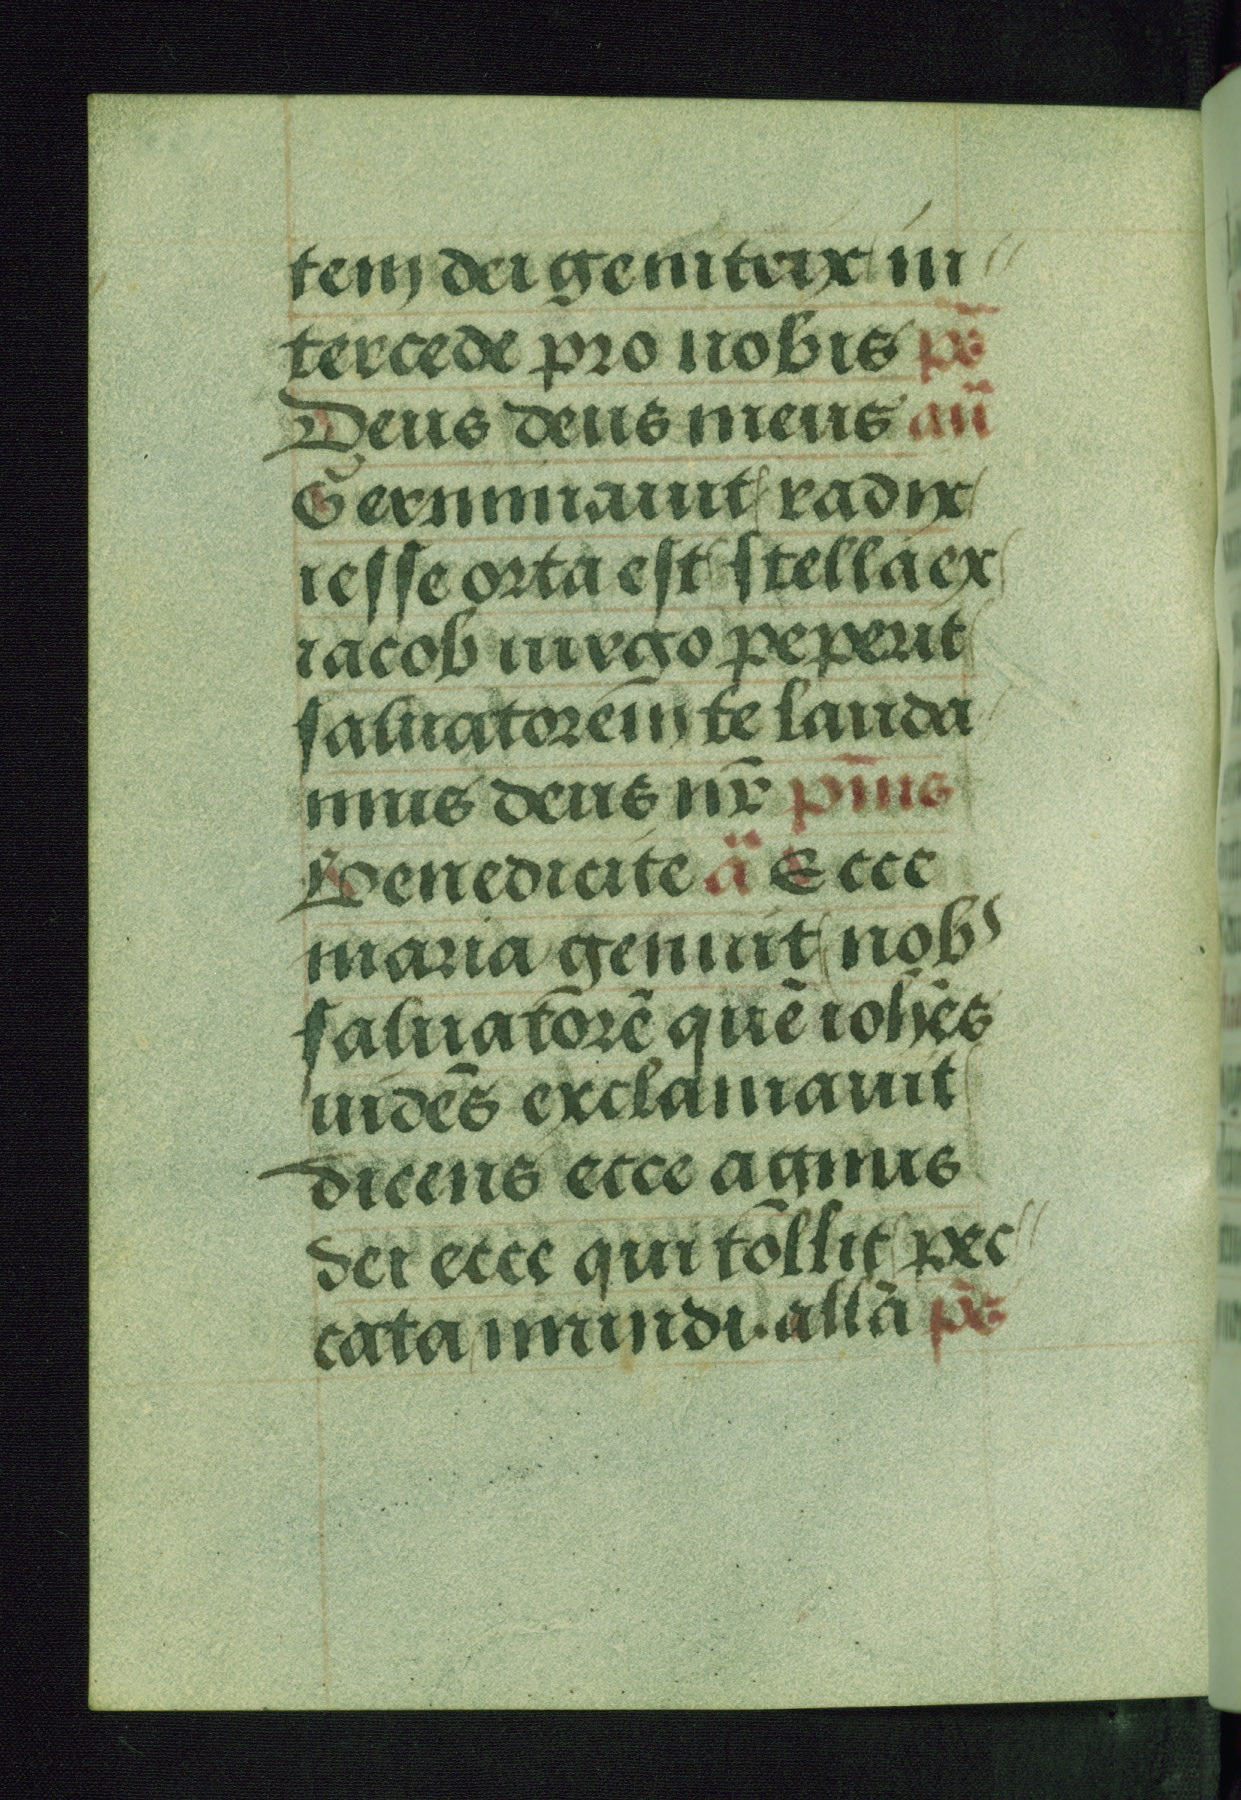 tem dei genitrix in
tercede pro nobis p̄s
Deus deus meus an̄
Germinauit radix
iesse orta est stella ex
iacob uirgo peperit
saluatorem te lauda
mus deus nr̄ pm̄us
Benedicite ā Ecce
maria genuit nobˢ
saluatorē quē ioh̄es
uidēs exclamauit
dicens ecce agnus
dei ecce qui tollit pec
cata mundi. allā p̄s